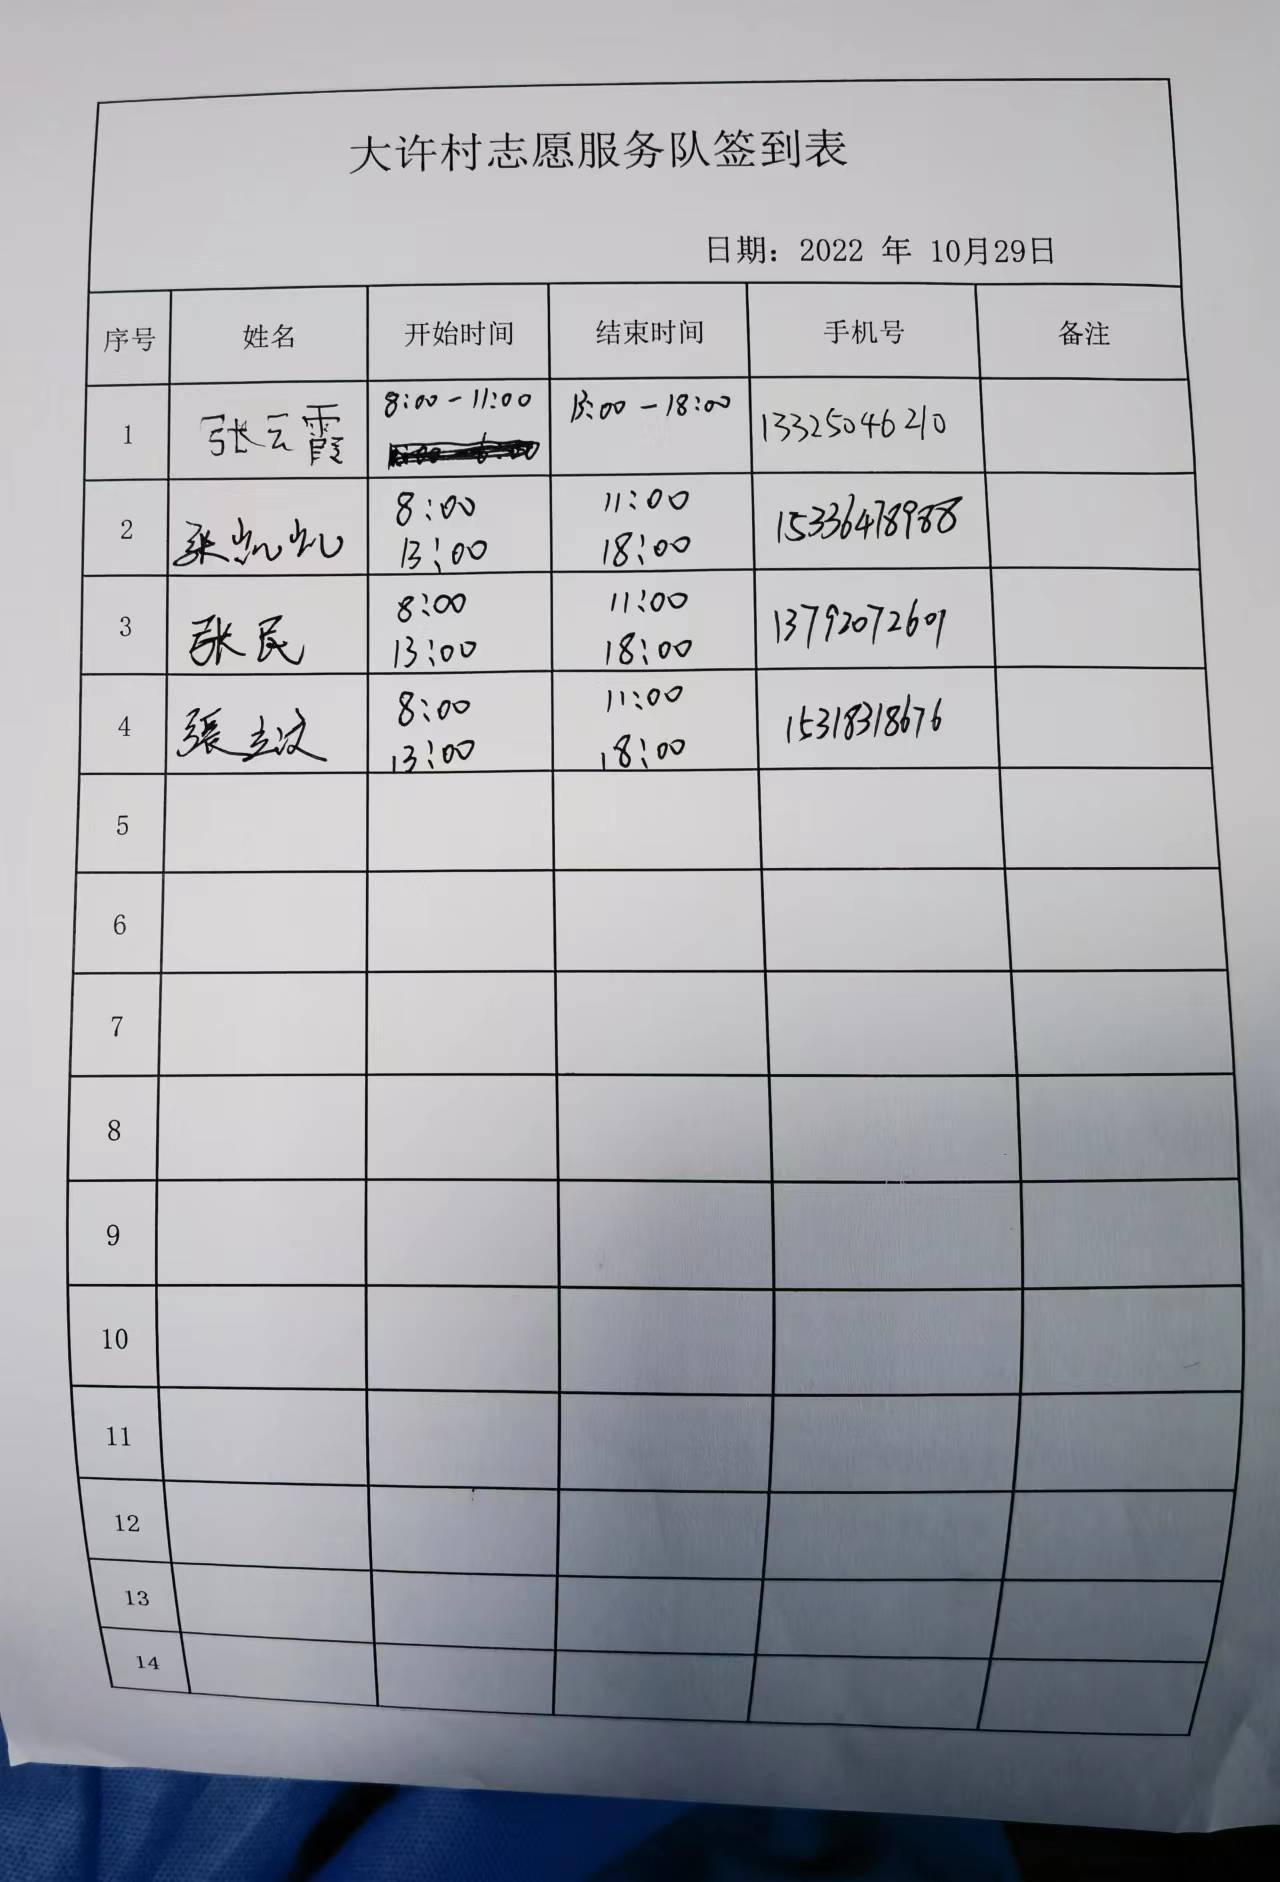 大许村志愿服务队签到表
日期：2022 年 10月29日
序号 姓名 开始时间 结束时间 手机号 备注
1 张云霞 8:00-11:00 13:00-18:00 13325046210
2 张凯凯 8:00 11:00 15336478988
13:00 18:00
3 张民 8:00 11:00 13792072601
13:00 18:00
4 張 8:00 11:00 15318318676
13:00 18:00
5
6
7
8
9
10
11
12
13
14